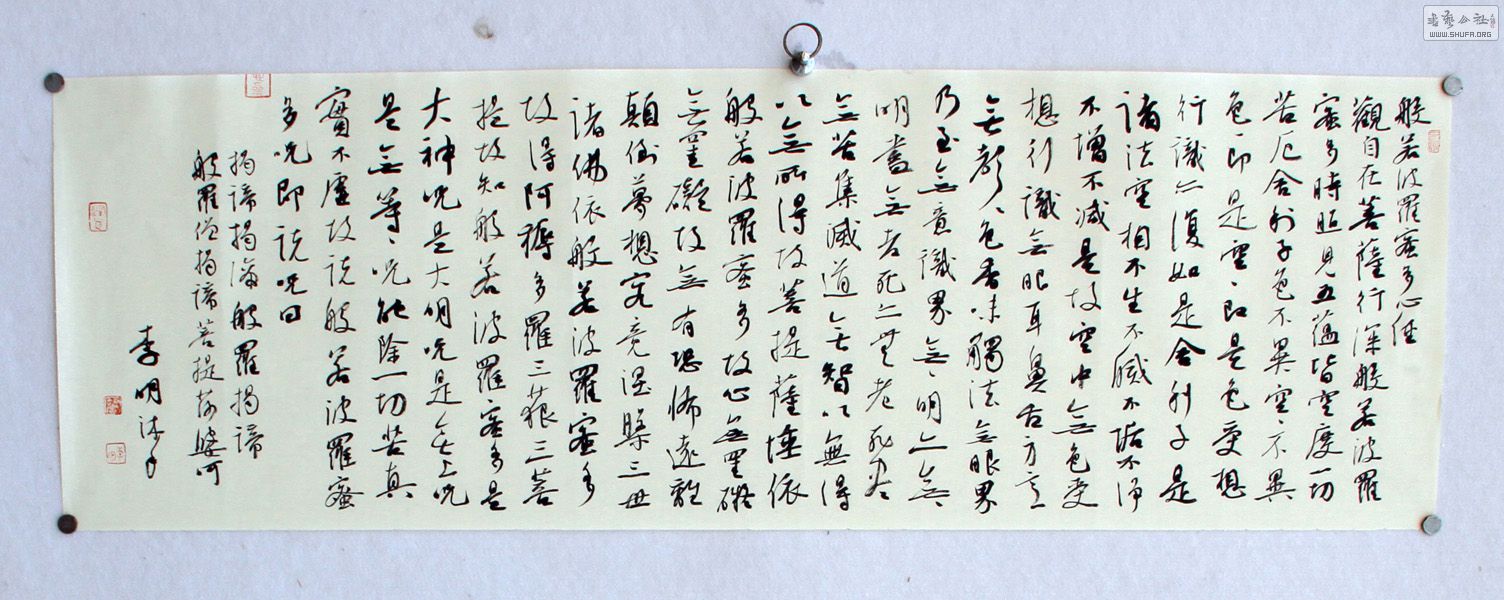 般若波羅蜜多心経
觀自在菩薩行深般若波羅
蜜多時照見五蘊皆空度一切
苦厄舍利子色不異空空不異
色色即是空空即是色受想
行識亦復如是舍利子是
諸法空相不生不滅不垢不淨
不增不減是故空中無色受
想行識無眼耳鼻舌身意
無聲色香味觸法無眼界
乃至無意識界無無明亦無
明盡無老死亦無老死盡
無苦集滅道無智以無得
以無所得故菩提薩埵依
般若波羅蜜多故心無罣礙
無罣礙故無有恐怖遠離
顛倒夢想究竟涅槃三世
諸佛依般若波羅蜜多
故得阿耨多羅三藐三菩
提故知般若波羅蜜多是
大神咒是大明咒是無上咒
是無等等咒能除一切苦真
實不虛故說般若波羅蜜
多咒即說咒曰
揭諦揭諦般羅揭諦
般羅僧揭諦菩提薩婆訶
李明
书艺公社
WWW.SHUFA.ORG